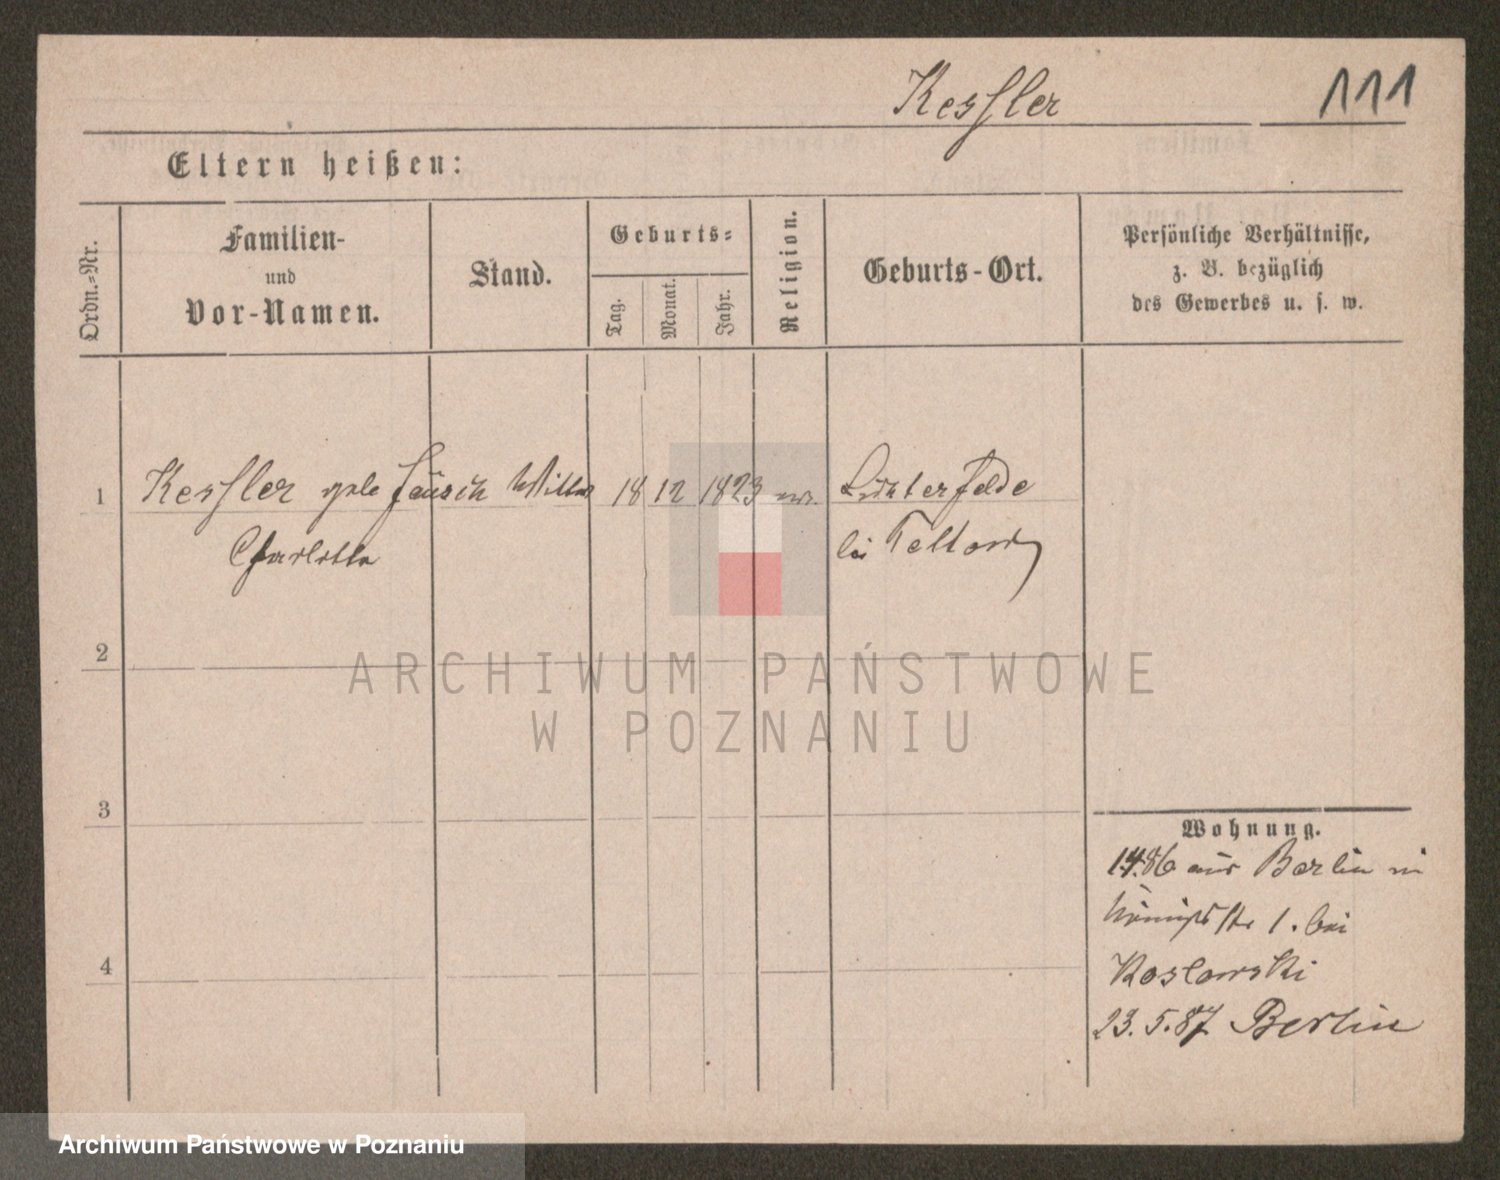 Kessler 111
Eltern heißen:
Ordn.-Nr.
Familien-
und
Vor-Namen.
Stand.
Geburts-
Tag.
Monat.
Jahr.
Religion.
Geburts-Ort.
Persönliche Verhältnisse,
z. B. bezüglich
des Gewerbes u. s. w.
1 Kessler gebe Witwe 18 12 1823 ev. Lichterfelde
Charlotte bei Teltow
2
3
4
Wohnung.
1.4.86 aus Berlin in
Königsstr 1. bei
Koslowski
23. 5. 87 Berlin
ARCHIWUM PAŃSTWOWE
W POZNANIU
Archiwum Państwowe w Poznaniu